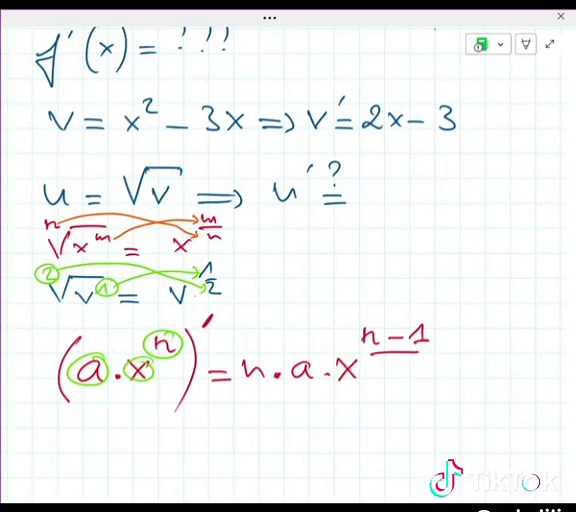 f'(x) = ?!!
v = x² - 3x ⟹ v' = 2x - 3
u = √v ⟹ u' ?=
ⁿ√xᵐ = x^(m/n)
²√v¹ = v^(1/2)
(a · xⁿ)' = n · a · x^(n-1)
TikTok